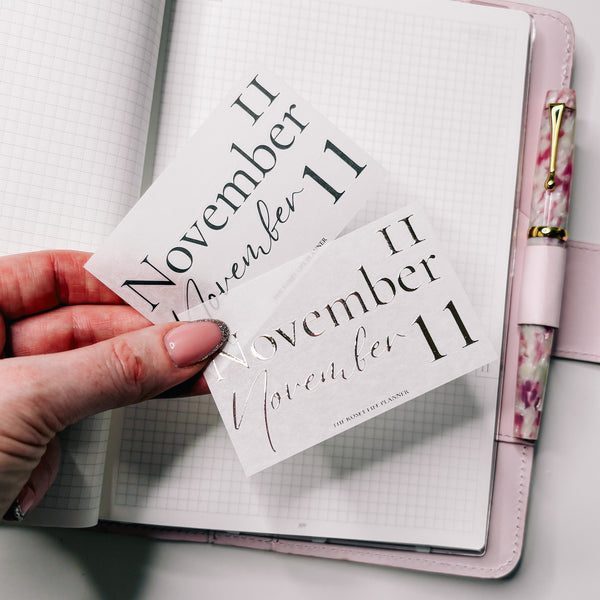 11
November
November 11
THE ROSEY LIFE PLANNER
11
November
November 11
THE ROSEY LIFE PLANNER